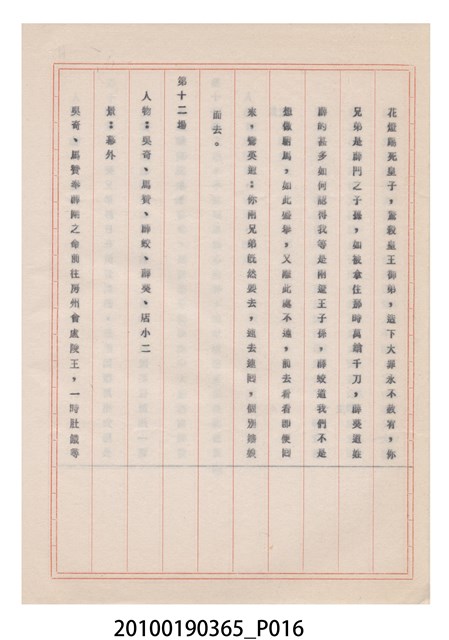 花燈踢死皇子，驚殺皇王御弟，這下大罪永不赦宥，你
兄弟是薛門之子孫，如被拿住那時萬鎗千刀，薛葵道姓
薛的甚多如何認得我等是兩遼王子孫，薛蛟道我們不是
想做駙馬，如此盛舉，又離此處不遠，前去看看即便回
來，鸞英道：你兩兄弟既然要去，速去速回，個別
面去。
第十二場
人物：吳奇、馬贊、薛蛟、薛葵、店小二
景：幕外
吳奇、馬贊奉薛剛之命前往房州會廬陵王，一時肚饑等
20100190365_P016